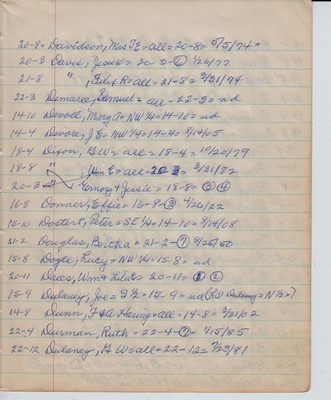 20-8= Davidson, Mrs T E = all = 20-8 = 5/5/74 =
20-3 Davis, Jesse W = 20-3-① 1/26/77
21-8 " , Felix R = all = 21-8 = 3/21/74
22-3 Demaree, Samuel = all - 22-3 = nd
14-10 Devoll, Mary A = NW 1/4 = 14-10 = nd
14-4 Devore, J E = NW 1/4 = 14-4 = 8/4/05
18-4 Dixon, G W = all = 18-4 = 10/20/79
18-8 " , Wm E = all = = 3/21/82
20-3 Emory & Jessie = 18-8 = ③ ④
16-8 Donner, Effie = 16-8-③ 4/26/22
15-10 Dostert, Peter = SE 1/4 = 14-10 = 8/14/08
21-2 Douglas, Bertha = 21-2-⑦ 9/25/50
15-8 Doyle, Lucy = NW 1/4 = 15-8 = nd
20-11 Drees, Wm & Lilith = 20-11 = ① ②
15-9 Dulaney, Joe = S 1/2 = 15-9 = nd (L W Dulaney = N 1/2 = ?)
14-8 Dunn, = all = 14-8 = 3/21/02
22-4 Durman, Ruth = 22-4-⑦ = 1/15/85
22-12 Dulaney, G W = all = 22-12 = 7/23/81